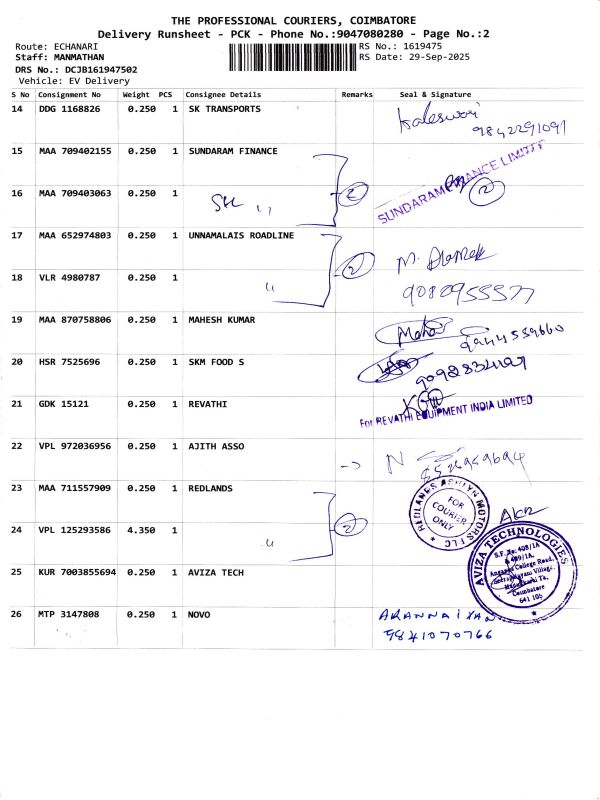 THE PROFESSIONAL COURIERS, COIMBATORE
Delivery Runsheet - PCK - Phone No.:9047080280 - Page No.:2
Route: ECHANARI
RS No.: 1619475
Staff: MANMATHAN
RS Date: 29-Sep-2025
DRS No.: DCJB161947502
Vehicle: EV Delivery
S No Consignment No Weight PCS Consignee Details Remarks Seal & Signature
14 DDG 1168826 0.250 1 SK TRANSPORTS
9842291091
15 MAA 709402155 0.250 1 SUNDARAM FINANCE
SUNDARAM FINANCE LIMITED
16 MAA 709403063 0.250 1
2 2
17 MAA 652974803 0.250 1 UNNAMALAIS ROADLINE
2
18 VLR 4980787 0.250 1
9080955577
19 MAA 870758806 0.250 1 MAHESH KUMAR
20 HSR 7525696 0.250 1 SKM FOOD S
21 GDK 15121 0.250 1 REVATHI
For REVATHI EQUIPMENT INDIA LIMITED
22 VPL 972036956 0.250 1 AJITH ASSO
23 MAA 711557909 0.250 1 REDLANDS
REDLANDS ASHLYN MOTORS PLC
FOR
COURIER
ONLY
24 VPL 125293586 4.350 1
2
AVIZA TECHNOLOGIES
Coimbatore
641 105
25 KUR 7003855694 0.250 1 AVIZA TECH
26 MTP 3147808 0.250 1 NOVO
9841070766